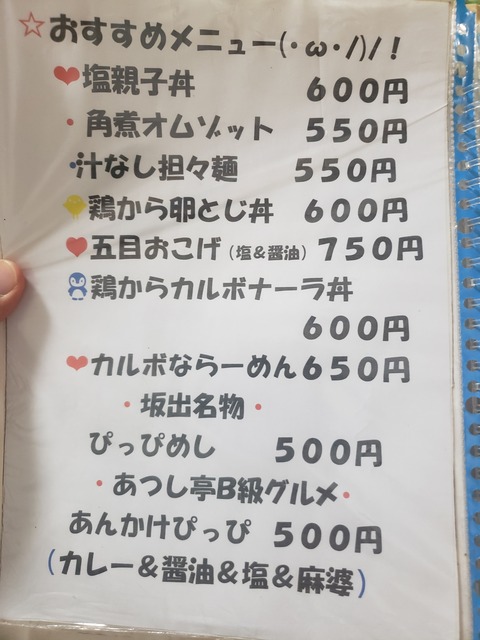 ☆おすすめメニュー(・ω・/)/！
❤塩親子丼 600円
・角煮オムゾット 550円
・汁なし担々麺 550円
鶏から卵とじ丼 600円
❤五目おこげ（塩&醤油）750円
鶏からカルボナーラ丼
600円
❤カルボならーめん650円
・坂出名物・
ぴっぴめし 500円
・あつし亭B級グルメ・
あんかけぴっぴ 500円
(カレー&醤油&塩&麻婆)